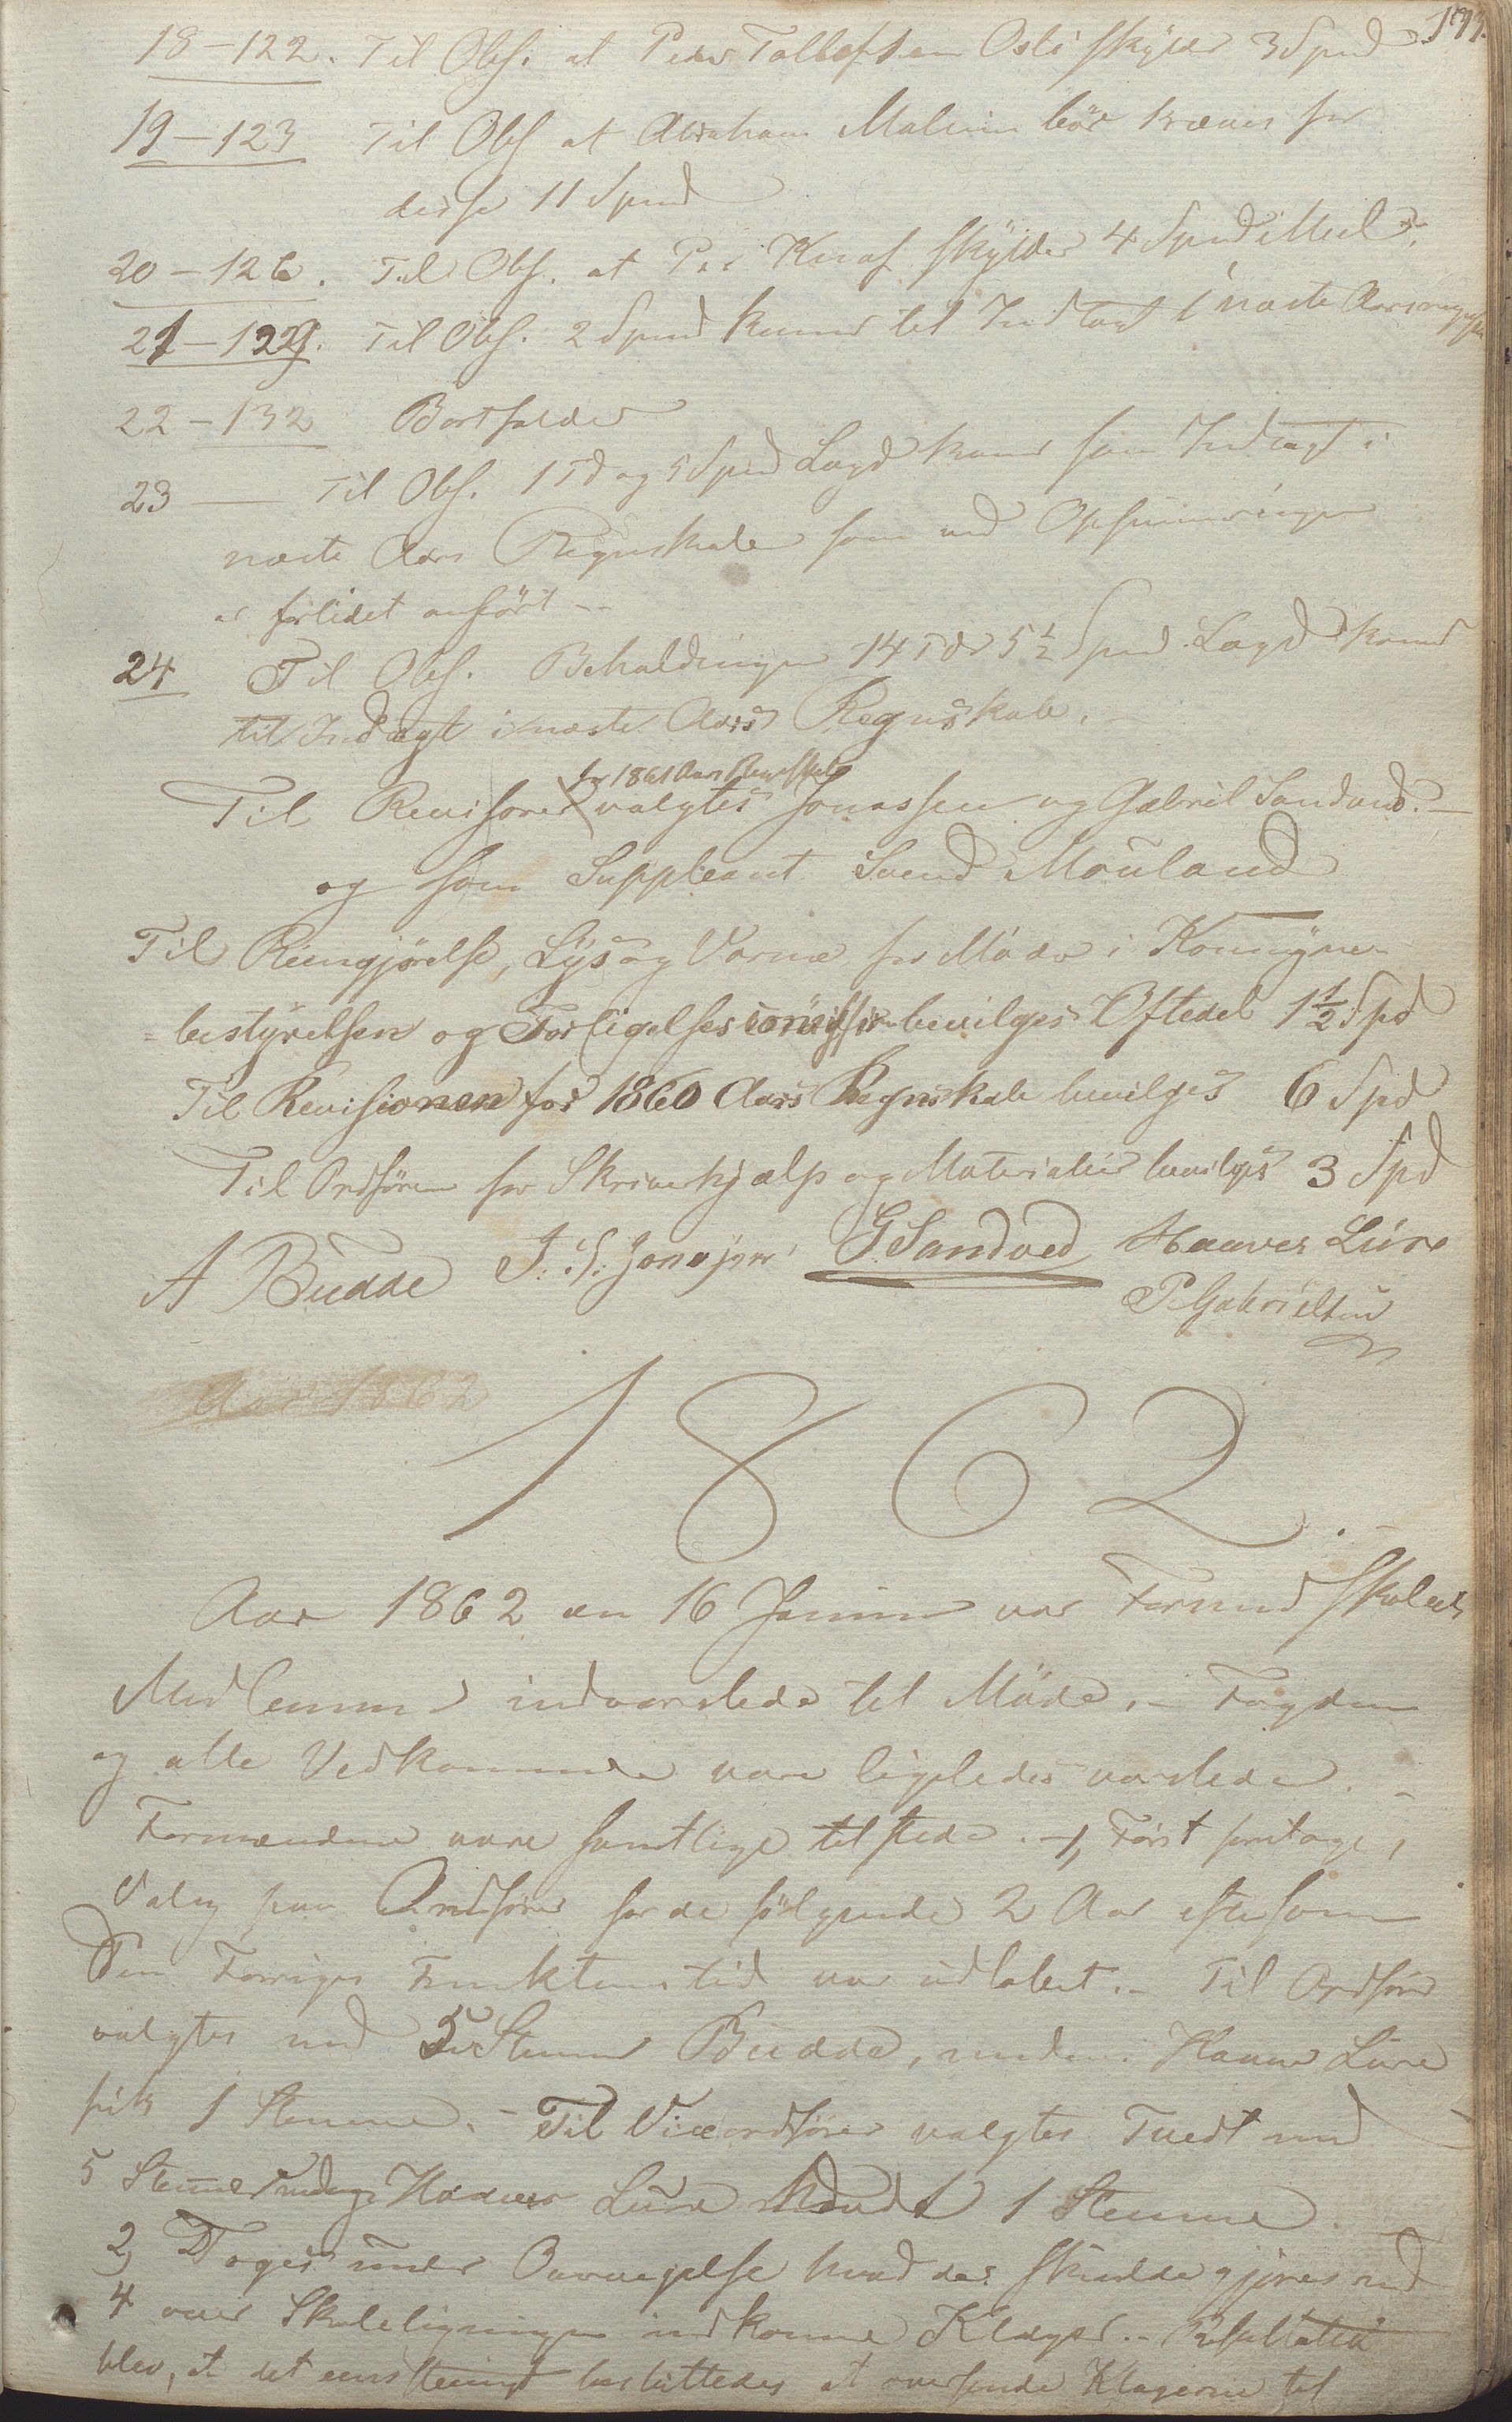 173.
18-122. Til Obs. at Peder Tollefsen Osli skylder 3 Spnd
19-123 Til Obs at Abraham Malmin bör kræves for
disse 11 Spnd
20-126. Til Obs. at Per Knaf skylder 4 Spnd Meel.
21-129. Til Obs. 2 Spnd kommer til Indtægt i næste Aarsregnskab
22-132 Bortfalder
23 — Til Obs. 1 Td og 5 Spnd Lagd kommer som Indtægt i
næste Aars Regnskab som ved Opsummeringen
er forlidet anfört --
24 Til Obs. Beholdningen 14 Tdr 5 1/2 Spnd Lagd kommer
til Indtægt i næste Aars Regnskab. -
for 1861 Aars Regnskab
Til Revisorer valgtes Jonassen og Gabriel Sandved. -
og som Suppleant Svend Mouland
Til Reengjörelse, Lys og Varme for Möder i Kommune-
bestyrelsen og Forligelsescommission bevilges Oftedal 1 1/2 Spd
Til Revisionen for 1860 Aars Regnskab bevilges 6 Spd
Til Ordföreren for Skrivehjælp og Materialier bevilges 3 Spd
A Budde J. S. Jonasen G Sandved Haaver Lura
P. Gabrielsen
Aar 1862
1862.-
Aar 1862 den 16 Januar var Formandskabets
Medlemmer indvarslede til Möde. - Fogden
og alle Vedkommende vare ligeledes varslede. -
Formændene vare samtlige tilstede. - 1, Först foretoges
Valg paa Ordförer for de fölgende 2 Aar eftersom
den Forriges Funktionstid var udlöbet. - Til Ordförer
valgtes med 5 Stemmer Budde, medens Haaver Lura
fik 1 Stemme. - Til Viceordförer valgtes Tvedt med
5 Stemmer medens Haaver Lura 1 Stemme. -
2) Toges under Overveielse hvad der skulde gjöres ved
4 over Skoleligningen indkomne Klager. - Resultatet
blev, at det eenstemmigt besluttedes at oversende Klagerne til